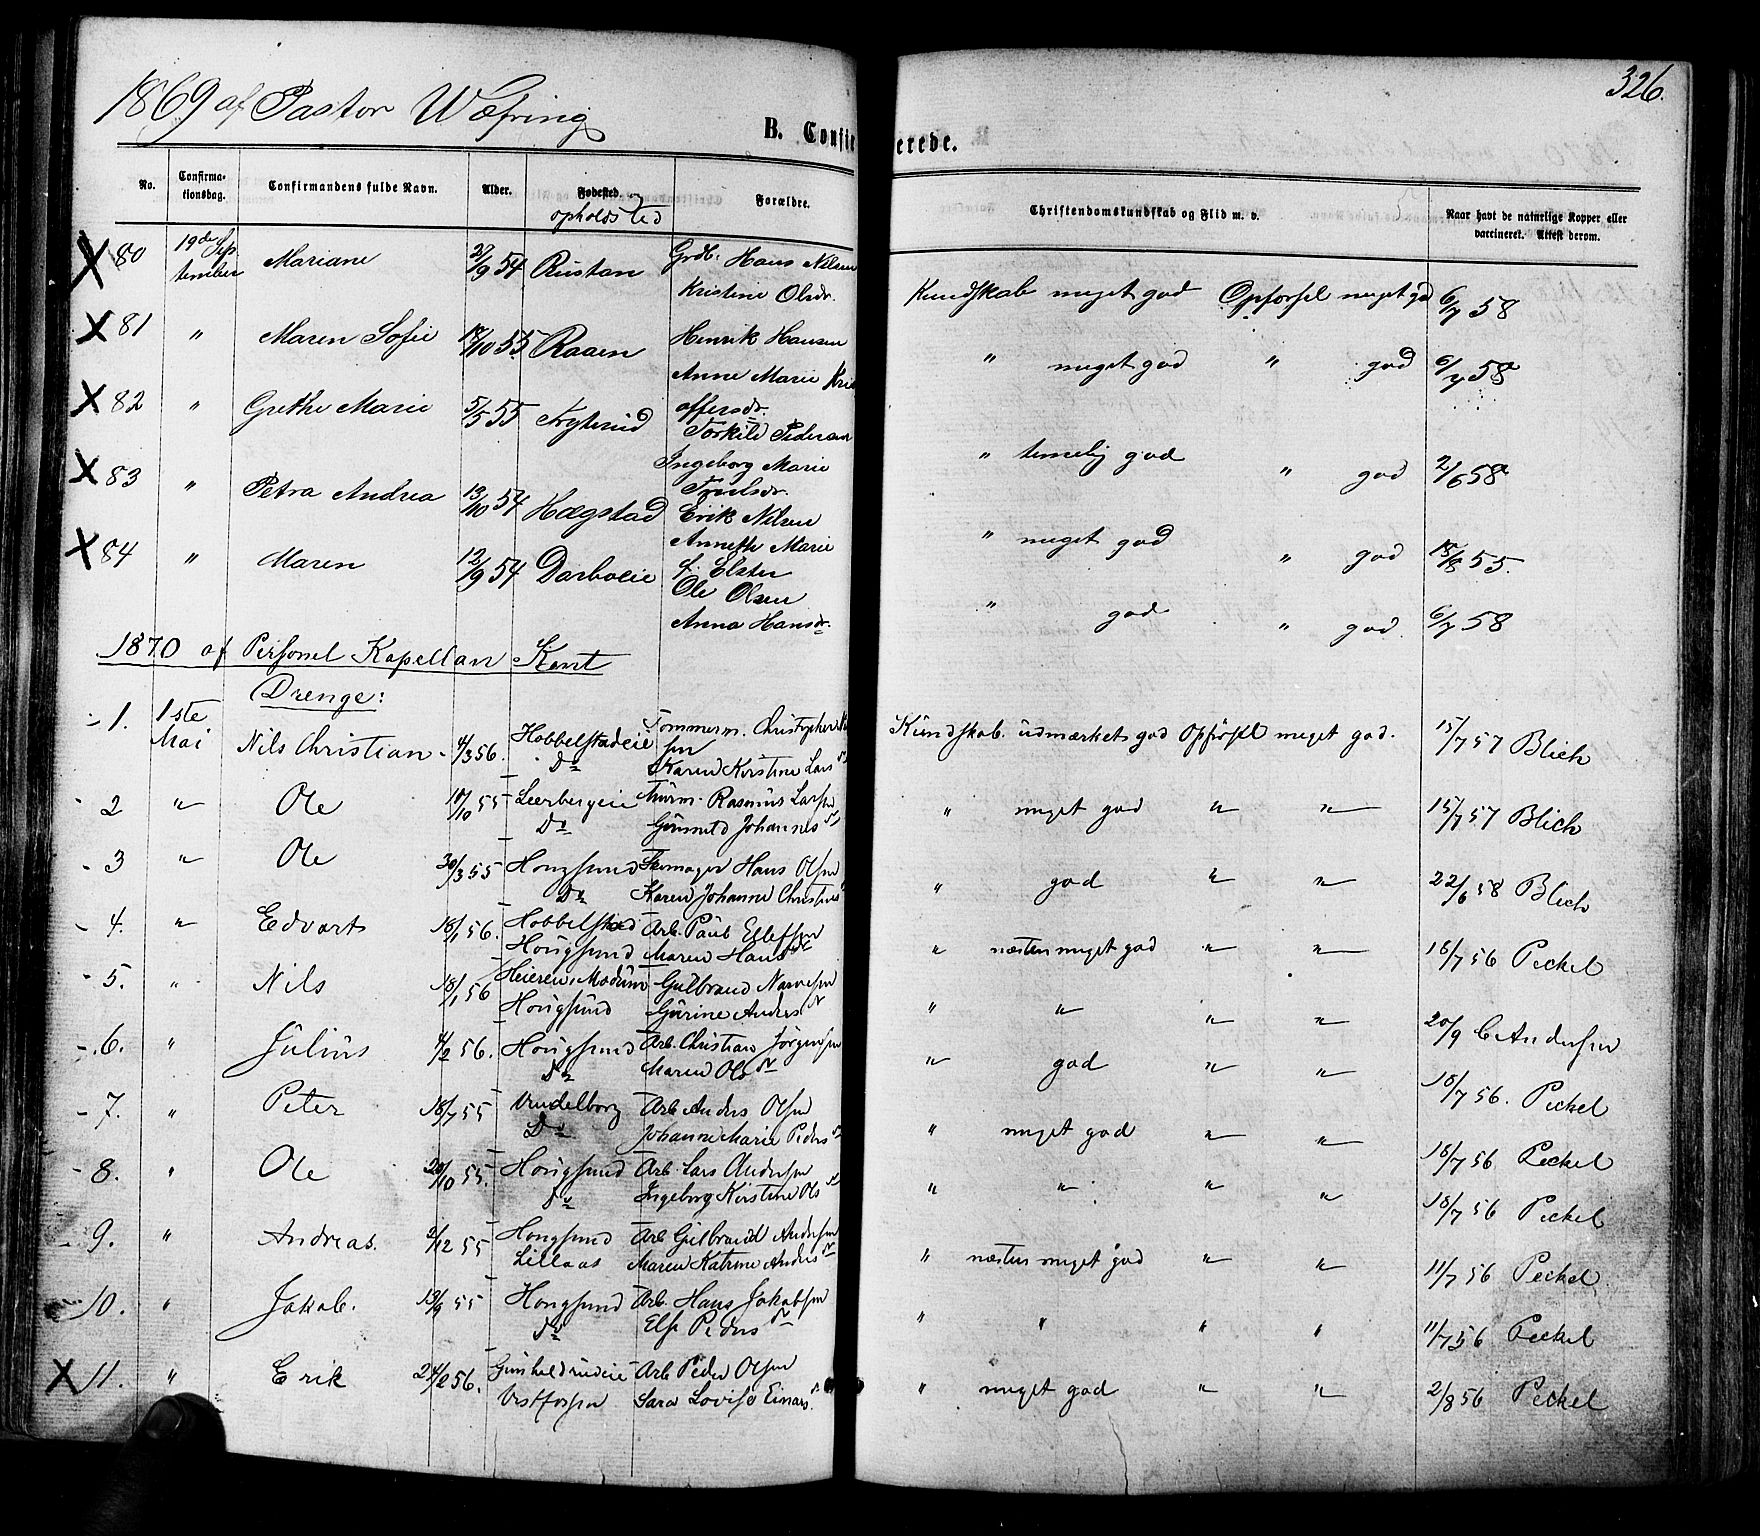 1869 af Pastor Wæfring
326.
B. Confir
erede.
No. Confirma-tionsdag. Confirmandens fulde Navn. Alder. Fødested. Forældre. Christendomskundskab og Flid m. v. Naar havt de naturlige Kopper eller vaccineret. Attest derom.
opholdsted
X 80 19de Sep Mariane 9 54 Rustan Grdb. Hans Nilsen Kundskab meget god Opførsel meget god 6/7 58
tember Kristine Olsdr.
X 81 " Maren Sofie 18/10 55 Raaen Henrik Hansen " meget god " god 6/7 58
Anne Marie Krist
X 82 " Grethe Marie 5/5 55 Fryterud offersdr. " temelig god " god 2/6 58
Torkild Pedersen
Ingeborg Marie
X 83 " Petra Andrea 13/10 54 Hægstad Truelsdr. " meget god " god 18/8 55.
Erik Nilsen
Annethe Marie
X 84 " Maren 12/9 54 Darboeie " god " god. 6/7 58
Ole Olsen
Anna Hansdr.
1870 af Personel Kapellan Kent
Drenge:
1. 1ste Mai Nils Christian 4/3 56. Hobbelstadeie Tommerm. Christopher Kundskab. udmærket god Opførsel meget god. 15/7 57 Blich
Do Karen Kirstine Lars dr
2 " Ole 10 55 Leerbergeie Rasmus Larsen " meget god " " 15/7 57 Blich
Do Gunnild Johannes dr
3 " Ole 30/3 55 Hougsund Skomager Hans Olsen " god " " 22/6 58 Blich
Do Karen Johanne Christens
4. " Edvart 18/1 56. Hobbelstad Arb. Paul Ellefsen " næsten meget god " " 18/7 56 Peckel
Hougsund Maren Hans dr
5. " Nils 18/1 56 Heieren, Modum Gulbrand Narvesen " " " " 20/9 C Andersen
Hougsund Gurine Anders dr
6. " Julius 4/2 56. Hougsund Arb. Christian Jørgensen " god " " 18/7 56. Peckel
Do Maren Ols dr
7. " Peter 18/7 55 Vendelborg Arb Anders Olsen " meget god " " 18/7 56 Peckel
Do Johanne Marie Peders dr
8. " Ole 20/10 55. Hougsund Arb. Lars Andersen " " " " 18/7 56 Peckel
Do Ingeborg Kirstine Ols dr
9. " Andreas. 2/12 55 Hougsund Arb Gulbrand Andersen " næsten meget god " " 11/7 56 Peckel
Lillaas Maren Katrine Anders dr
10. " Jakob. 13/9 55 Hougsund Arb. Hans Jakobsen " " " " 11/7 56 Peckel
Do Else Peders dr
X 11. " Erik 24/2 56. Gunhildrudeie Arb Peder Olsen " meget god " " 2/8 56 Peckel
Vestfossen Sara Lovise Einars dr